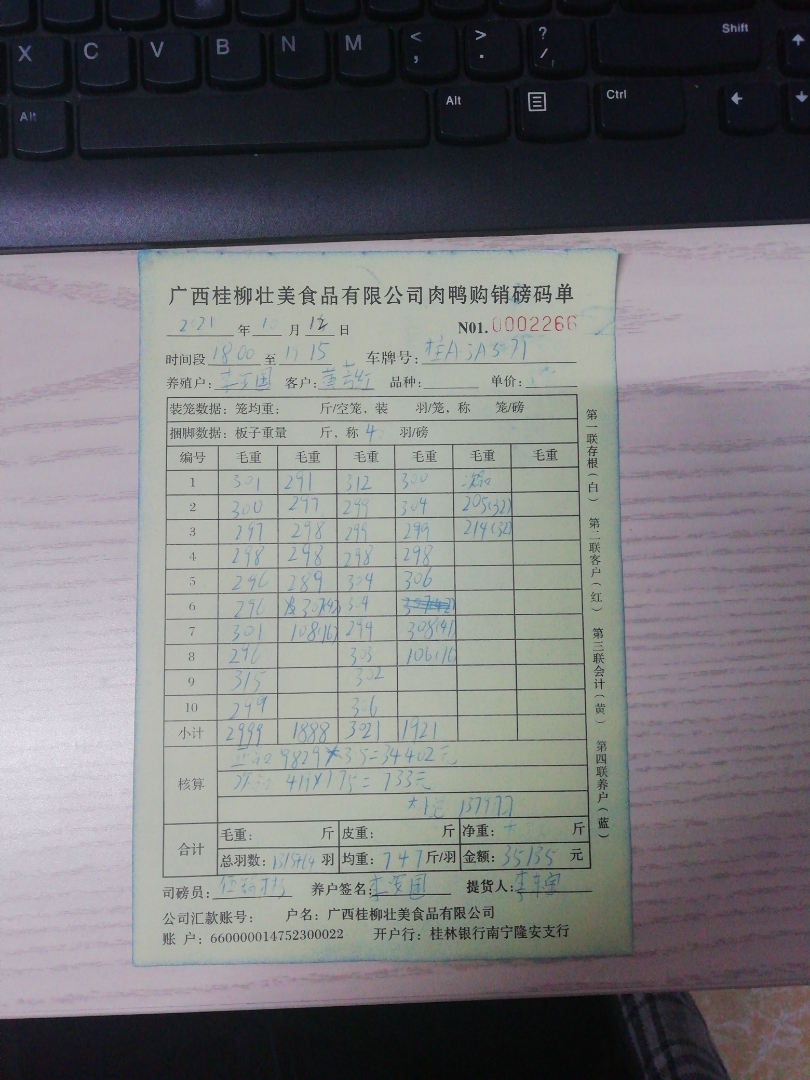 X C V B N M < , > . ? / Shift
Alt Alt Ctrl
广西桂柳壮美食品有限公司肉鸭购销磅码单
2021 年 10 月 12 日 N01.0002266
时间段 18 00 至 15 车牌号: 桂A
养殖户: 客户: 品种: 单价:
装笼数据: 笼均重: 斤/空笼, 装 羽/笼, 称 笼/磅
捆脚数据: 板子重量 斤, 称 4 羽/磅
编号 毛重 毛重 毛重 毛重 毛重 毛重
1 301 291 312 300
2 300 297 299 304 205(32)
3 297 298 299 299 214(32)
4 298 298 298 298
5 296 289 304 306
6 296 307(42) 304
7 301 108(16) 299 308(41)
8 296 303 106(16)
9 315 302
10 299 306
小计 2999 1888 3021 1921
核算 9829*3.5=34402元
419×1.75=733元
合计 毛重: 斤 皮重: 斤 净重: 斤
总羽数: 羽 均重: 7.47 斤/羽 金额: 35135 元
司磅员: 养户签名: 提货人:
公司汇款账号: 户名: 广西桂柳壮美食品有限公司
账 户: 660000014752300022 开户行: 桂林银行南宁隆安支行
第一联存根(白) 第二联客户(红) 第三联会计(黄) 第四联养户(蓝)